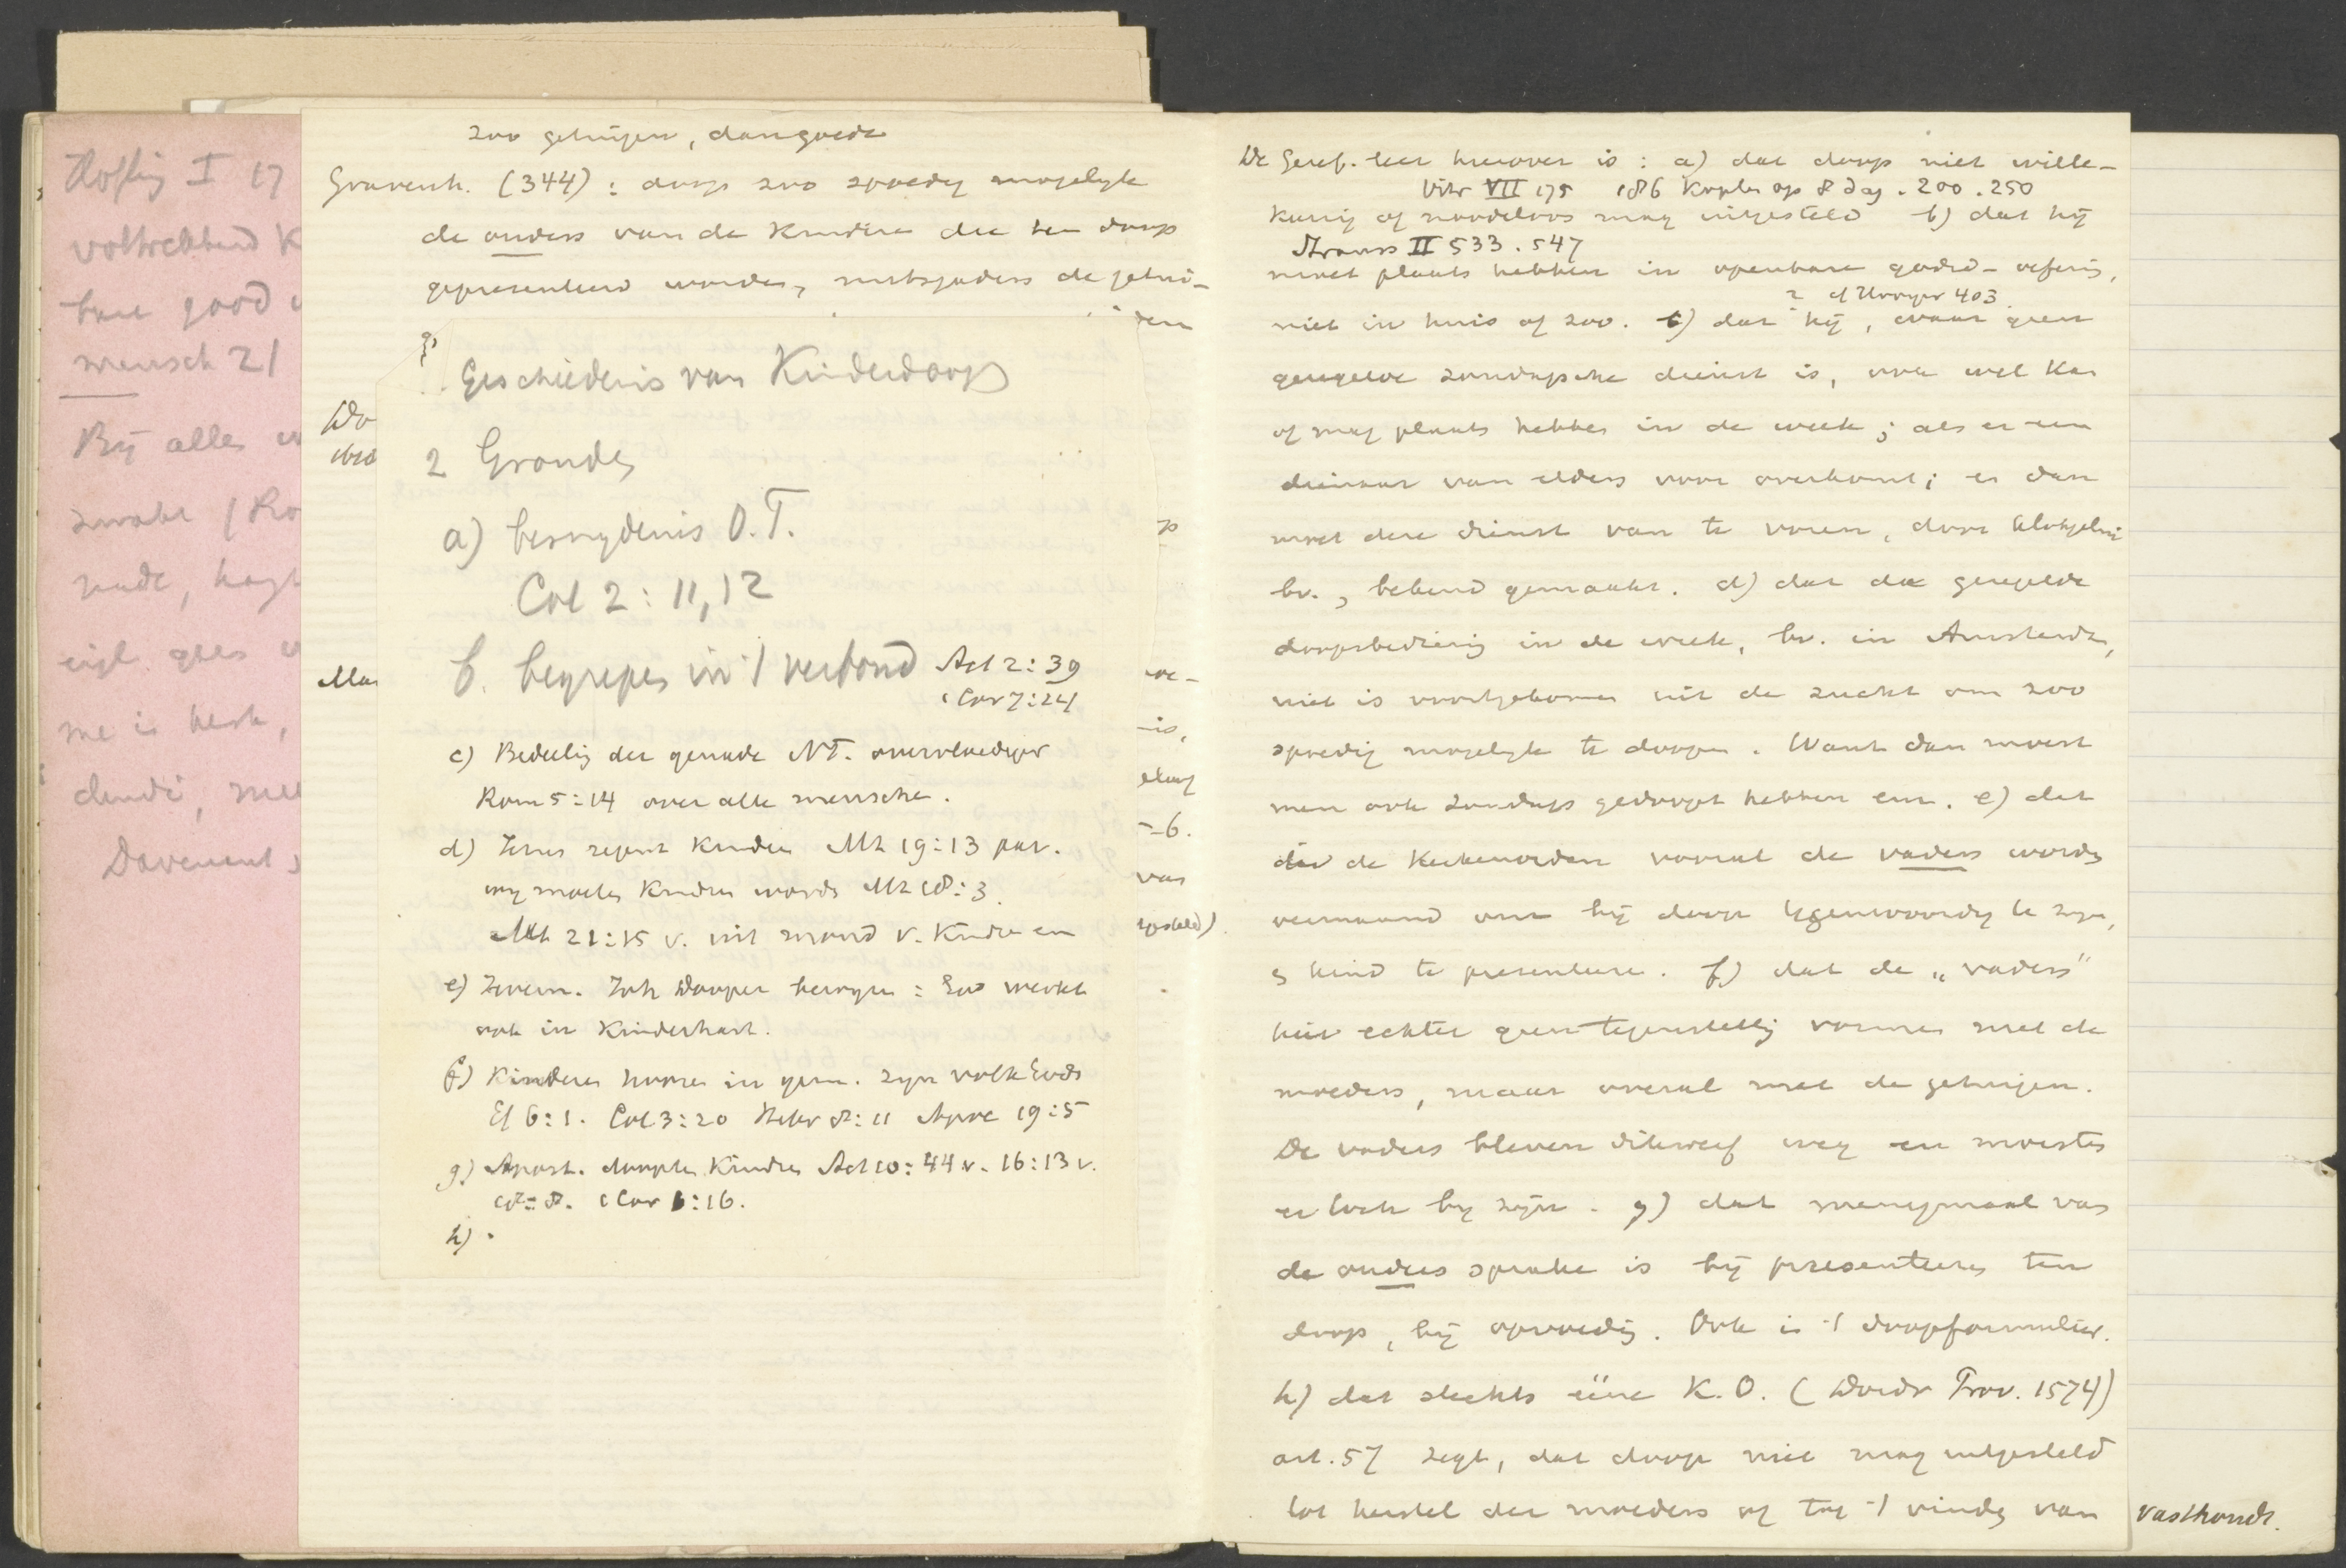 Höfling I 17
voltrekkend K
bare good
mensch 21
Bij alles
zwakt (Ro
me is
Davenant
zoo getuigen, dan goede
Gravenh. (344): doop zoo spoedig mogelijk
de ouders van de kinderen die ten doop
gepresenteerd worden, mitsgaders de getui-
gen
Do
Mar
Geschiedenis van Kinderdoop
2 Gronden
a) besnydenis O.T.
Col 2:11,12
b. begrepen in 't verbond Act 2:39
1 Cor 7:14
c) Bedeeling der genade NT. overvloediger
Rom 5:14 over alle menschen.
d) Jezus zegent kinderen Mt 19:13 par.
wy moeten kinderen worden Mt 18:3.
Mt 21:15 v. uit mond v. kinderen
e) Jerem. Joh Dooper bewyzen: God werkt
ook in kinderhart.
f) Kinderen hooren in gem. zyn volk Gods
Ef 6:1. Col 3:20 Hebr 8:11 Apoc 19:5
g) Apost. doopten kinderen Act 10:44 v. 16:13 v.
18:8. 1 Cor 1:16.
h) .
De Geref. leer hierover is: a) dat doop niet wille-
Vitr VII 175 186 Kopten op 8 dag. 200.250
keurig of noodeloos mag uitgesteld b) dat hij
Strauss II 533.547
moet plaats hebben in openbare godsd-oefening,
cf Hooyer 403
niet in huis of zoo. c) dat hij, waar geen
geregelde zondagsche dienst is, ook wel kan
of mag plaats hebben in de week; als er een
dienaar van elders voor overkomt; en dan
moet deze dienst van te voren, door klokgelui
bv., bekend gemaakt. d) dat de geregelde
doopsbediening in de week, bv. in Amsterdam,
niet is voortgekomen uit de zucht om zoo
spoedig mogelijk te doopen. Want dan moest
men ook zondags gedoopt hebben enz. e) dat
in de Kerkenorden vooral de vaders worden
vermaand om bij doop tegenwoordig te zyn,
en kind te presenteeren. f) dat de „vaders"
hier echter geen tegenstelling vormen met de
moeders, maar overal met de getuigen.
De vaders bleven dikwerf weg en moesten
er toch by zyn. g) dat menigmaal van
de ouders sprake is bij presenteeren ten
doop, bij opvoeding. Ook in 't doopformulier.
h) dat slechts ééne K.O. (Dordr Prov. 1574)
art. 57 zegt, dat doop niet mag uitgesteld
tot herstel der moeders of tot 't vinden van
vasthoudt.